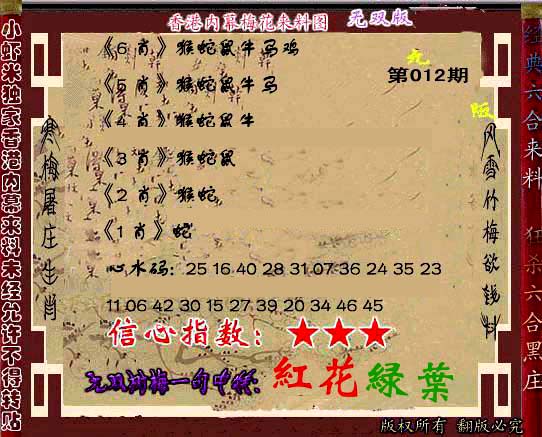 香港内幕梅花来料图 无双版
《6 肖》猴蛇鼠牛马鸡
第012期
《5 肖》猴蛇鼠牛马
《4 肖》猴蛇鼠牛
《3 肖》猴蛇鼠
《2 肖》猴蛇
《1 肖》蛇
心水码：25 16 40 28 31 07 36 24 35 23
11 06 42 30 15 27 39 20 34 46 45
信心指数：★★★
红花緑葉
版权所有 翻版必究
小虾米独家香港内幕来料未经允许不得转贴
寒梅屠庄生肖
风雪竹梅欲钱料
经典六合来料 狂杀六合黑庄